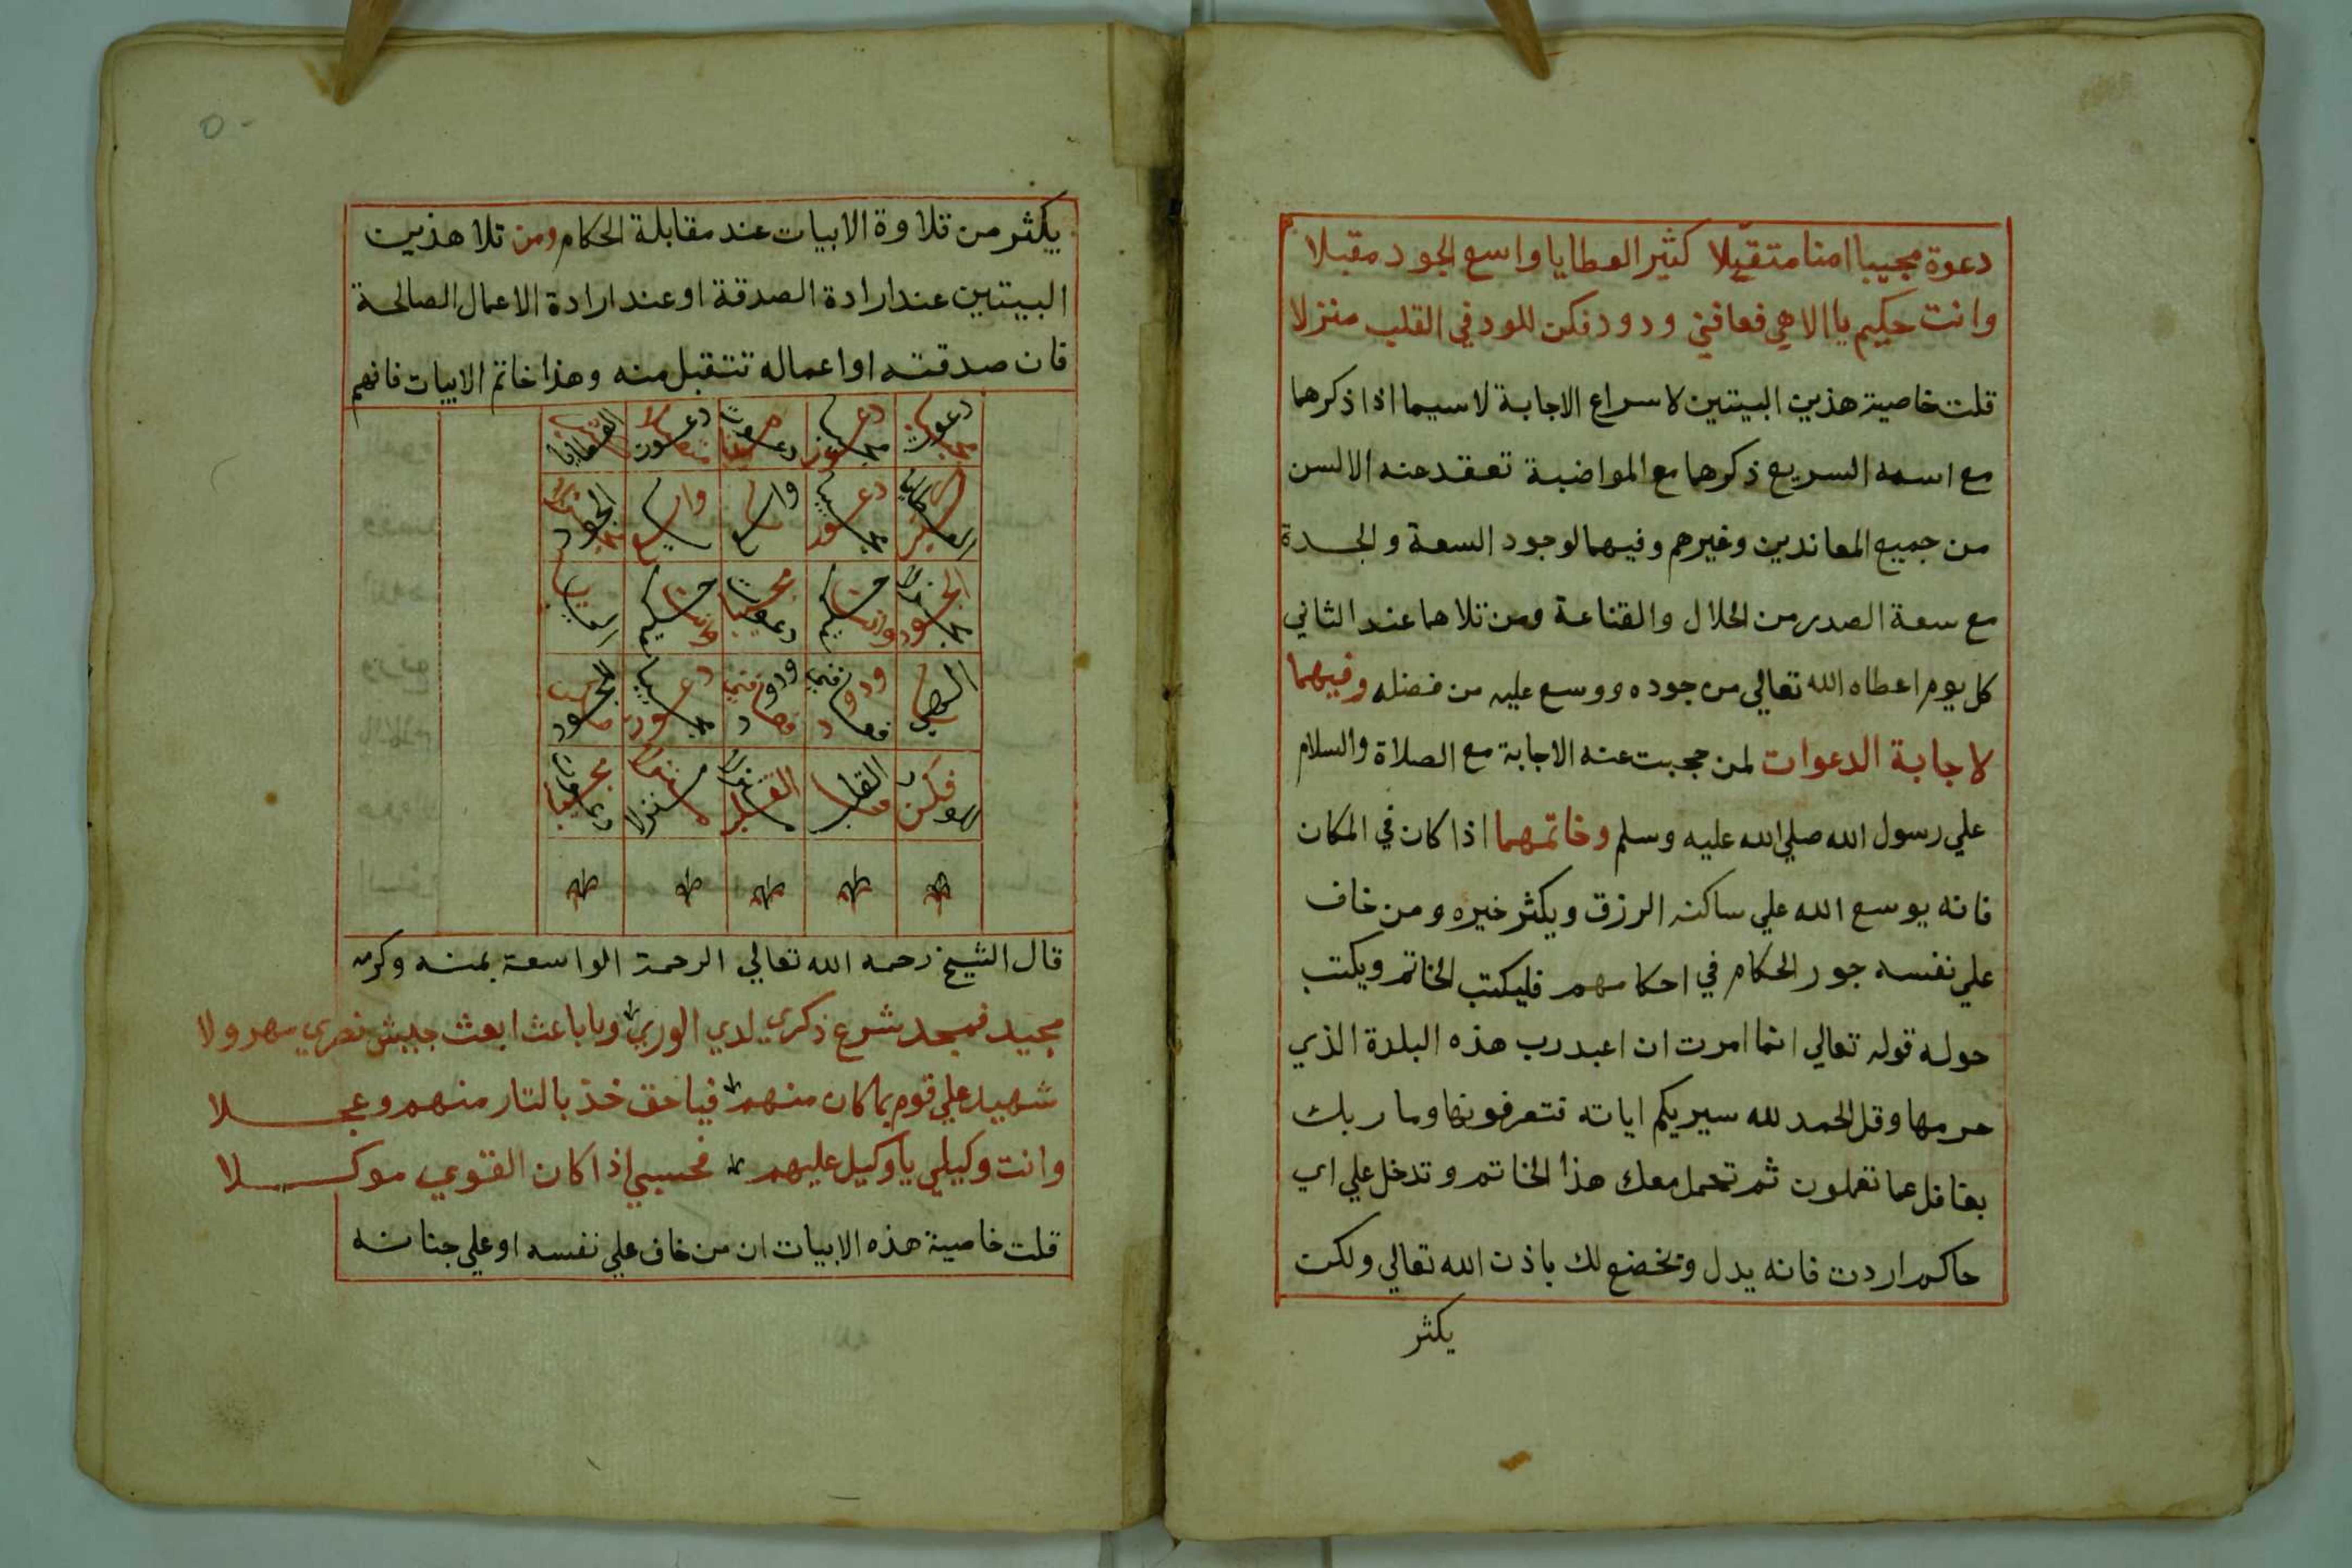 دعوة مجيبا امنا متقبلا كثير العطايا واسع الجود مقبلا
وانت حكيم يا الاهي فعافني ودود فكن للود في القلب منزلا
قلت خاصية هذين البيتين لاسراع الاجابة لاسيما اذا ذكرهما
مع اسمه السريع ذكرهما مع المواضبة تعقد عنه الالسن
من جميع المعاندين وغيرهم وفيهما لوجود السعة والجدة
مع سعة الصدر من الحلال والقناعة ومن تلاهما عند الثاني
كل يوم اعطاه الله تعالي من جوده ووسع عليه من فضله وفيهما
لاجابة الدعوات لمن حجبت عنه الاجابة مع الصلاة والسلام
علي رسول الله صلي الله عليه وسلم وخاتمهما اذا كان في المكان
فانه يوسع الله علي ساكنه الرزق ويكثر خيره ومن خاف
علي نفسه جور الحكام في احكامهم فليكتب الخاتم ويكتب
حوله قوله تعالي انما امرت ان اعبد رب هذه البلدة الذي
حرمها وقل الحمد لله سيريكم اياته فتعرفونها وما ربك
بغافل عما تعملون ثم تحمل معك هذا الخاتم وتدخل علي اي
حاكم اردت فانه يدل ويخضع لك باذن الله تعالي ولكن
يكثر
يكثر من تلاوة الابيات عند مقابلة الحكام ومن تلا هذين
البيتين عند ارادة الصدقة او عند ارادة الاعمال الصالحة
فان صدقته او اعماله تتقبل منه وهذا خاتم الابيات فافهم
قال الشيخ رحمه الله تعالي الرحمة الواسعة بمنه وكرمه
مجيد فمجد شرع ذكري لدي الوري ويا باعث ابعث جيش نصري مهرولا
شهيد علي قوم بما كان منهم فيا حق خذ بالتار منهم وعجلا
وانت وكيلي يا وكيل عليهم فحسبي اذا كان القوي موكلا
قلت خاصية هذه الابيات ان من خاف علي نفسه او علي جنانه